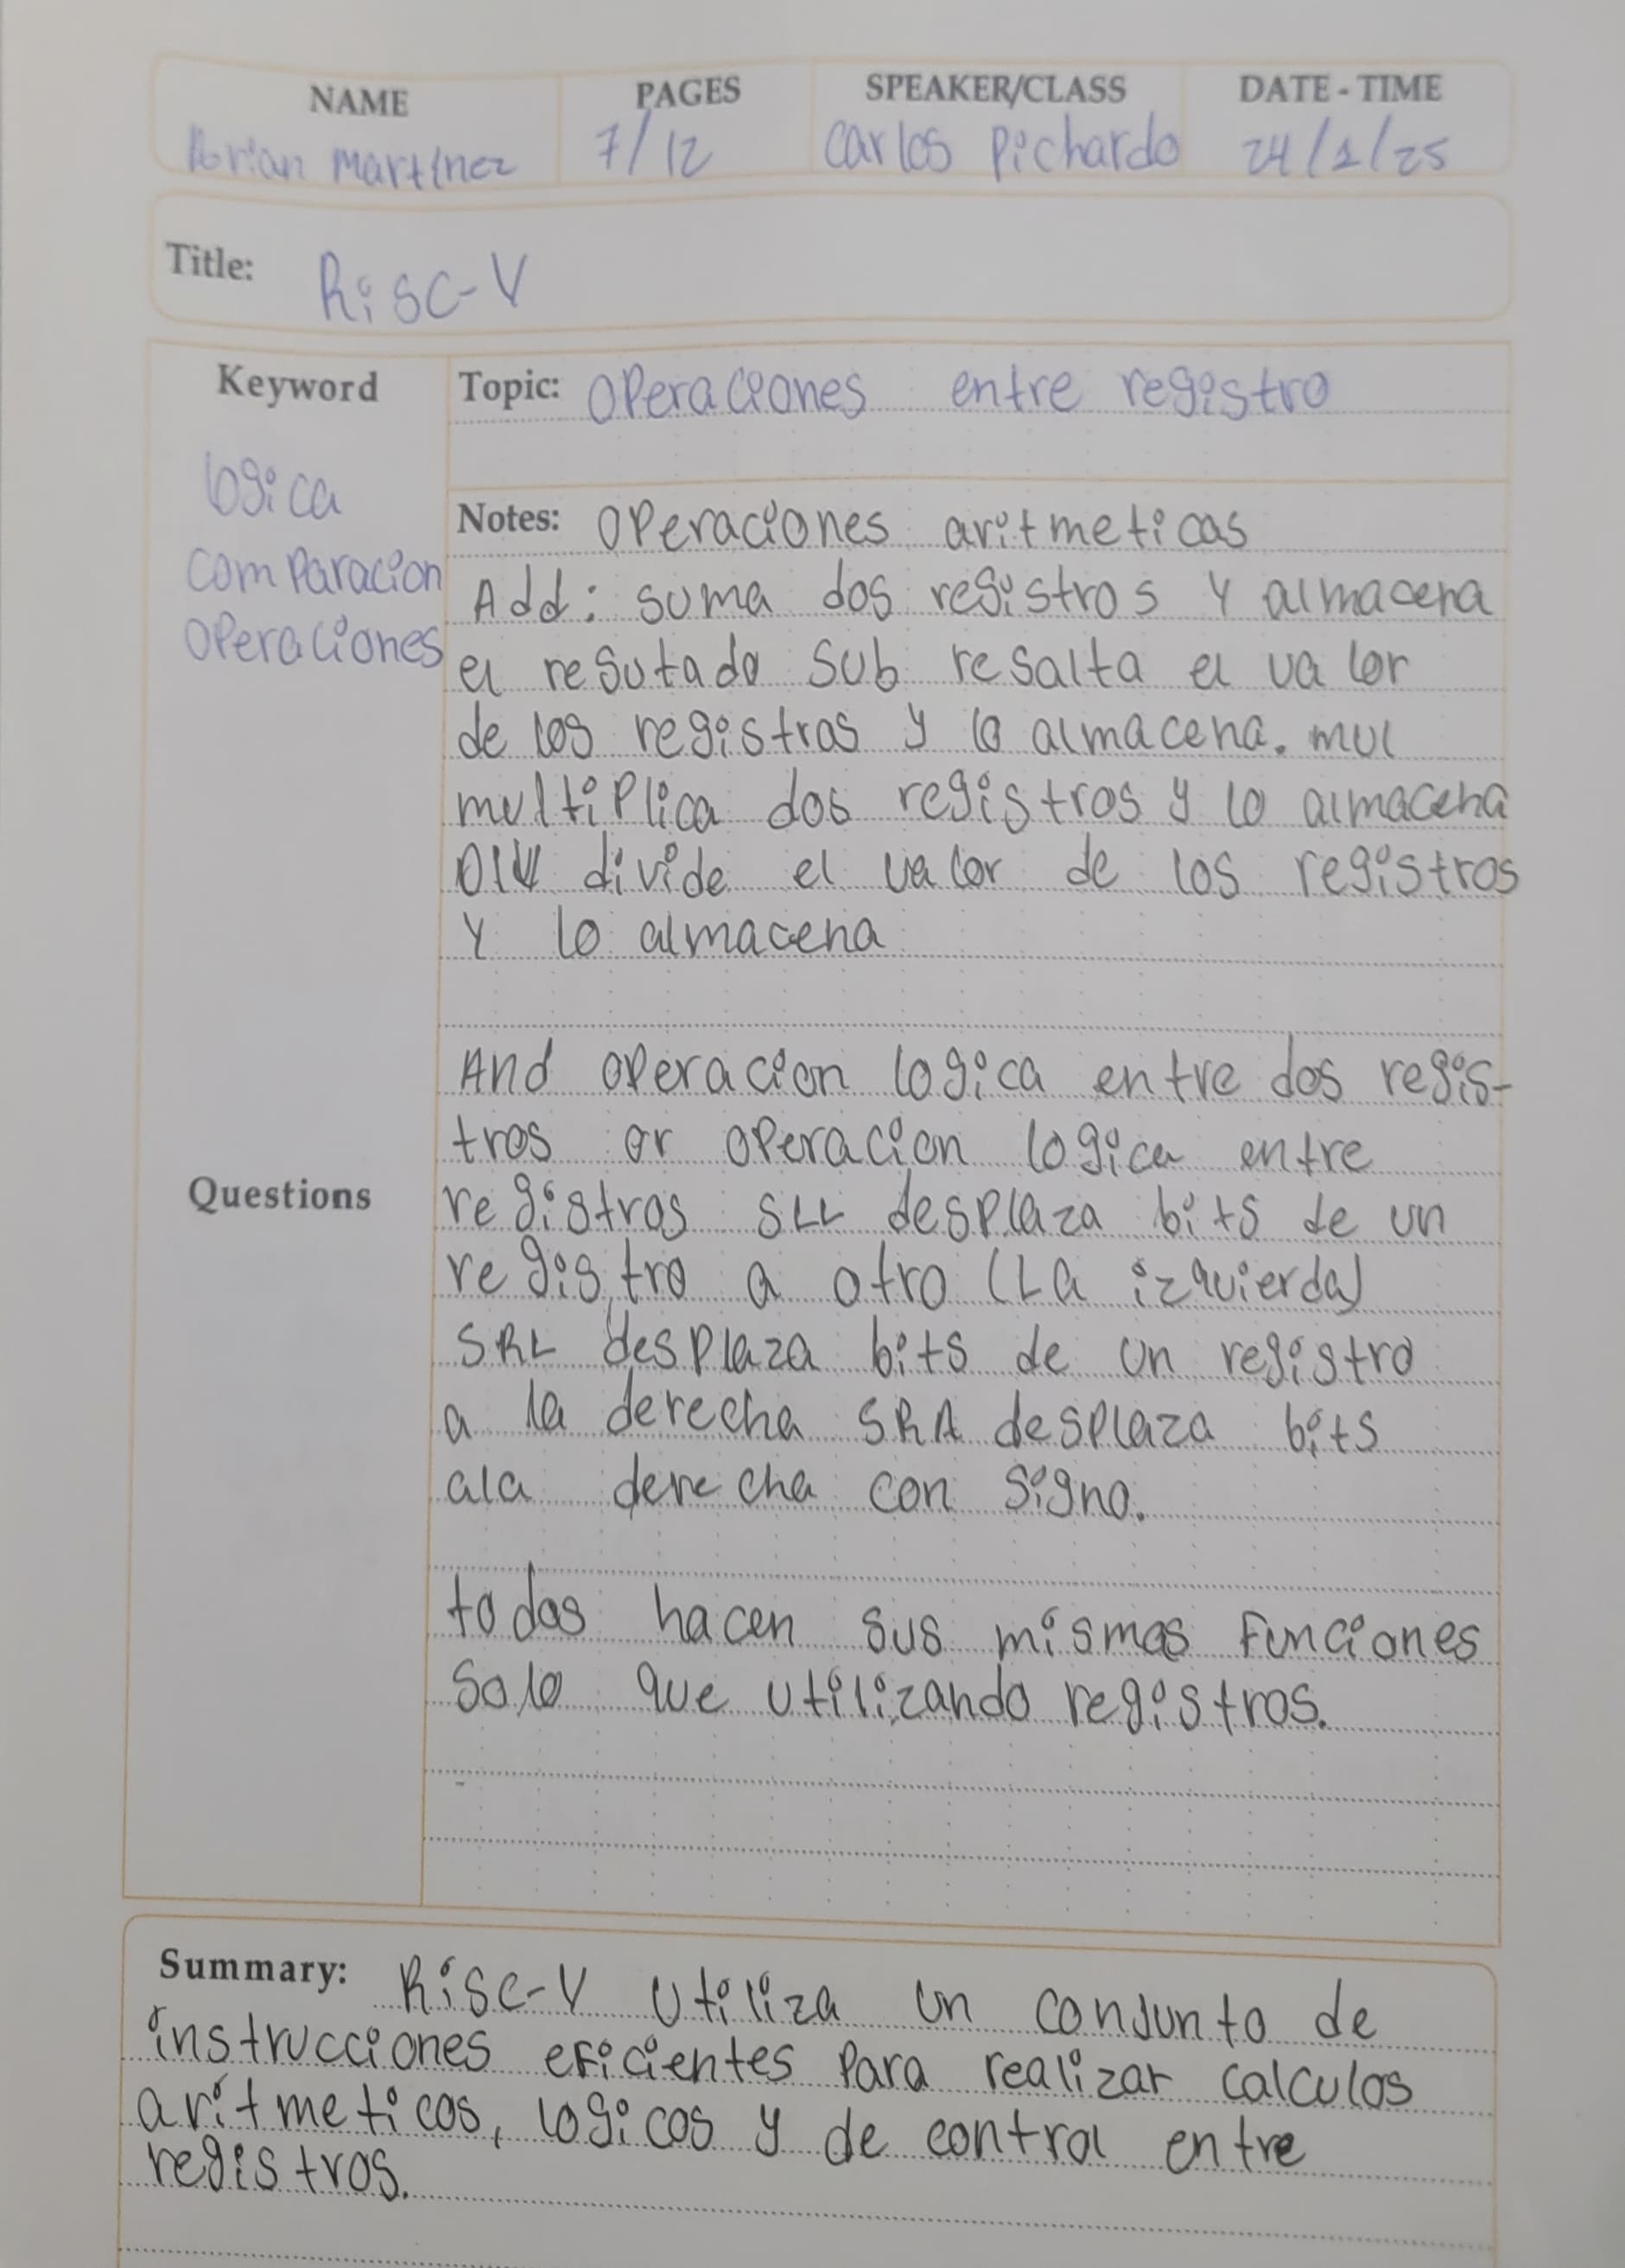 NAME PAGES SPEAKER/CLASS DATE - TIME
Adrian Martinez 7/12 Carlos Pichardo 24/1/25
Title: Risc-V
Keyword
Topic: Operaciones entre registro
logica
comparacion
operaciones
Notes: Operaciones aritmeticas
Add: suma dos registros y almacena
el resutado sub resalta el valor
de los registros y lo almacena. mul
multiplica dos registros y lo almacena
DIV divide el valor de los registros
y lo almacena
And operacion logica entre dos regis-
tros or operacion logica entre
registros SLL desplaza bits de un
registro a otro (La izquierda)
SRL desplaza bits de un registro
a la derecha SRA desplaza bits
ala derecha con signo.
Questions
todas hacen sus mismas funciones
solo que utilizando registros.
Summary: Risc-V utiliza un conjunto de
instrucciones eficientes para realizar calculos
aritmeticos, logicos y de control entre
registros.